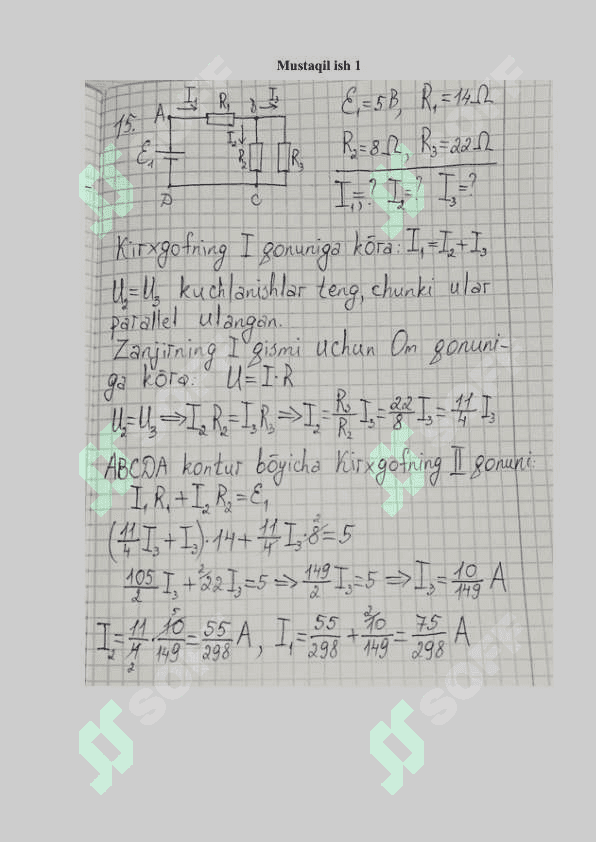 Mustaqil ish 1
15.
A I₁ R₁ B I₃
I₂
Ɛ₁ R₂ R₃
D C
Ɛ₁=5B, R₁=14Ω
R₂=8Ω, R₃=22Ω
I₁=? I₂=? I₃=?
Kirxgofning I qonuniga kõra: I₁=I₂+I₃
U₂=U₃ kuchlanishlar teng, chunki ular
parallel ulangan.
Zanjirning I qismi uchun Om qonuni-
ga kõra: U=I·R
U₂=U₃ ⇒ I₂R₂=I₃R₃ ⇒ I₂=R₃/R₂ I₃=22/8 I₃=11/4 I₃
ABCDA kontur bõyicha Kirxgofning II qonuni:
I₁R₁+I₂R₂=Ɛ₁
(11/4 I₃+I₃)·14+11/4 I₃·8=5
105/2 I₃+22I₃=5 ⇒ 149/2 I₃=5 ⇒ I₃=10/149 A
I₂=11/4·10/149=55/298 A, I₁=55/298+10/149=75/298 A
SOFF
SOFF
SOFF
SOFF
SOFF
SOFF